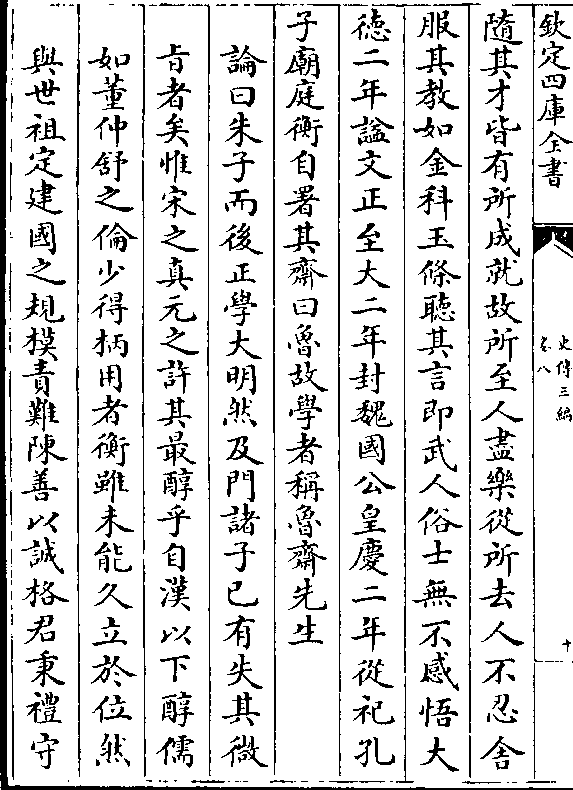 欽定四庫全書
史傳三編
卷八
十
隨其才皆有所成就故所至人盡樂從所去人不忍舍
服其教如金科玉條聽其言即武人俗士無不感悟大
徳二年諡文正至大二年封魏國公皇慶二年從祀孔
子廟庭衡自署其齋曰魯故學者稱魯齋先生
論曰朱子而後正學大明然及門諸子已有失其微
㫖者矣惟宋之真元之許其最醇乎自漢以下醇儒
如董仲舒之倫少得柄用者衡雖未能久立於位然
與世祖定建國之規模責難陳善以誠格君秉禮守